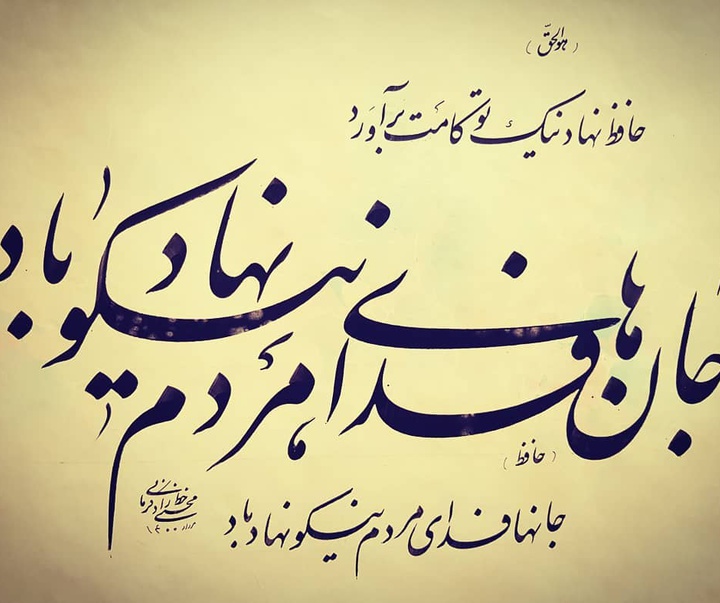 (هوالحق)
حافظ نهاد نیک تو کامت برآورد
جان ها فدای مردم نیکو نهاد باد
(حافظ)
جانها فدای مردم نیکو نهاد باد
خط
مجتبی
۱۴۰۰